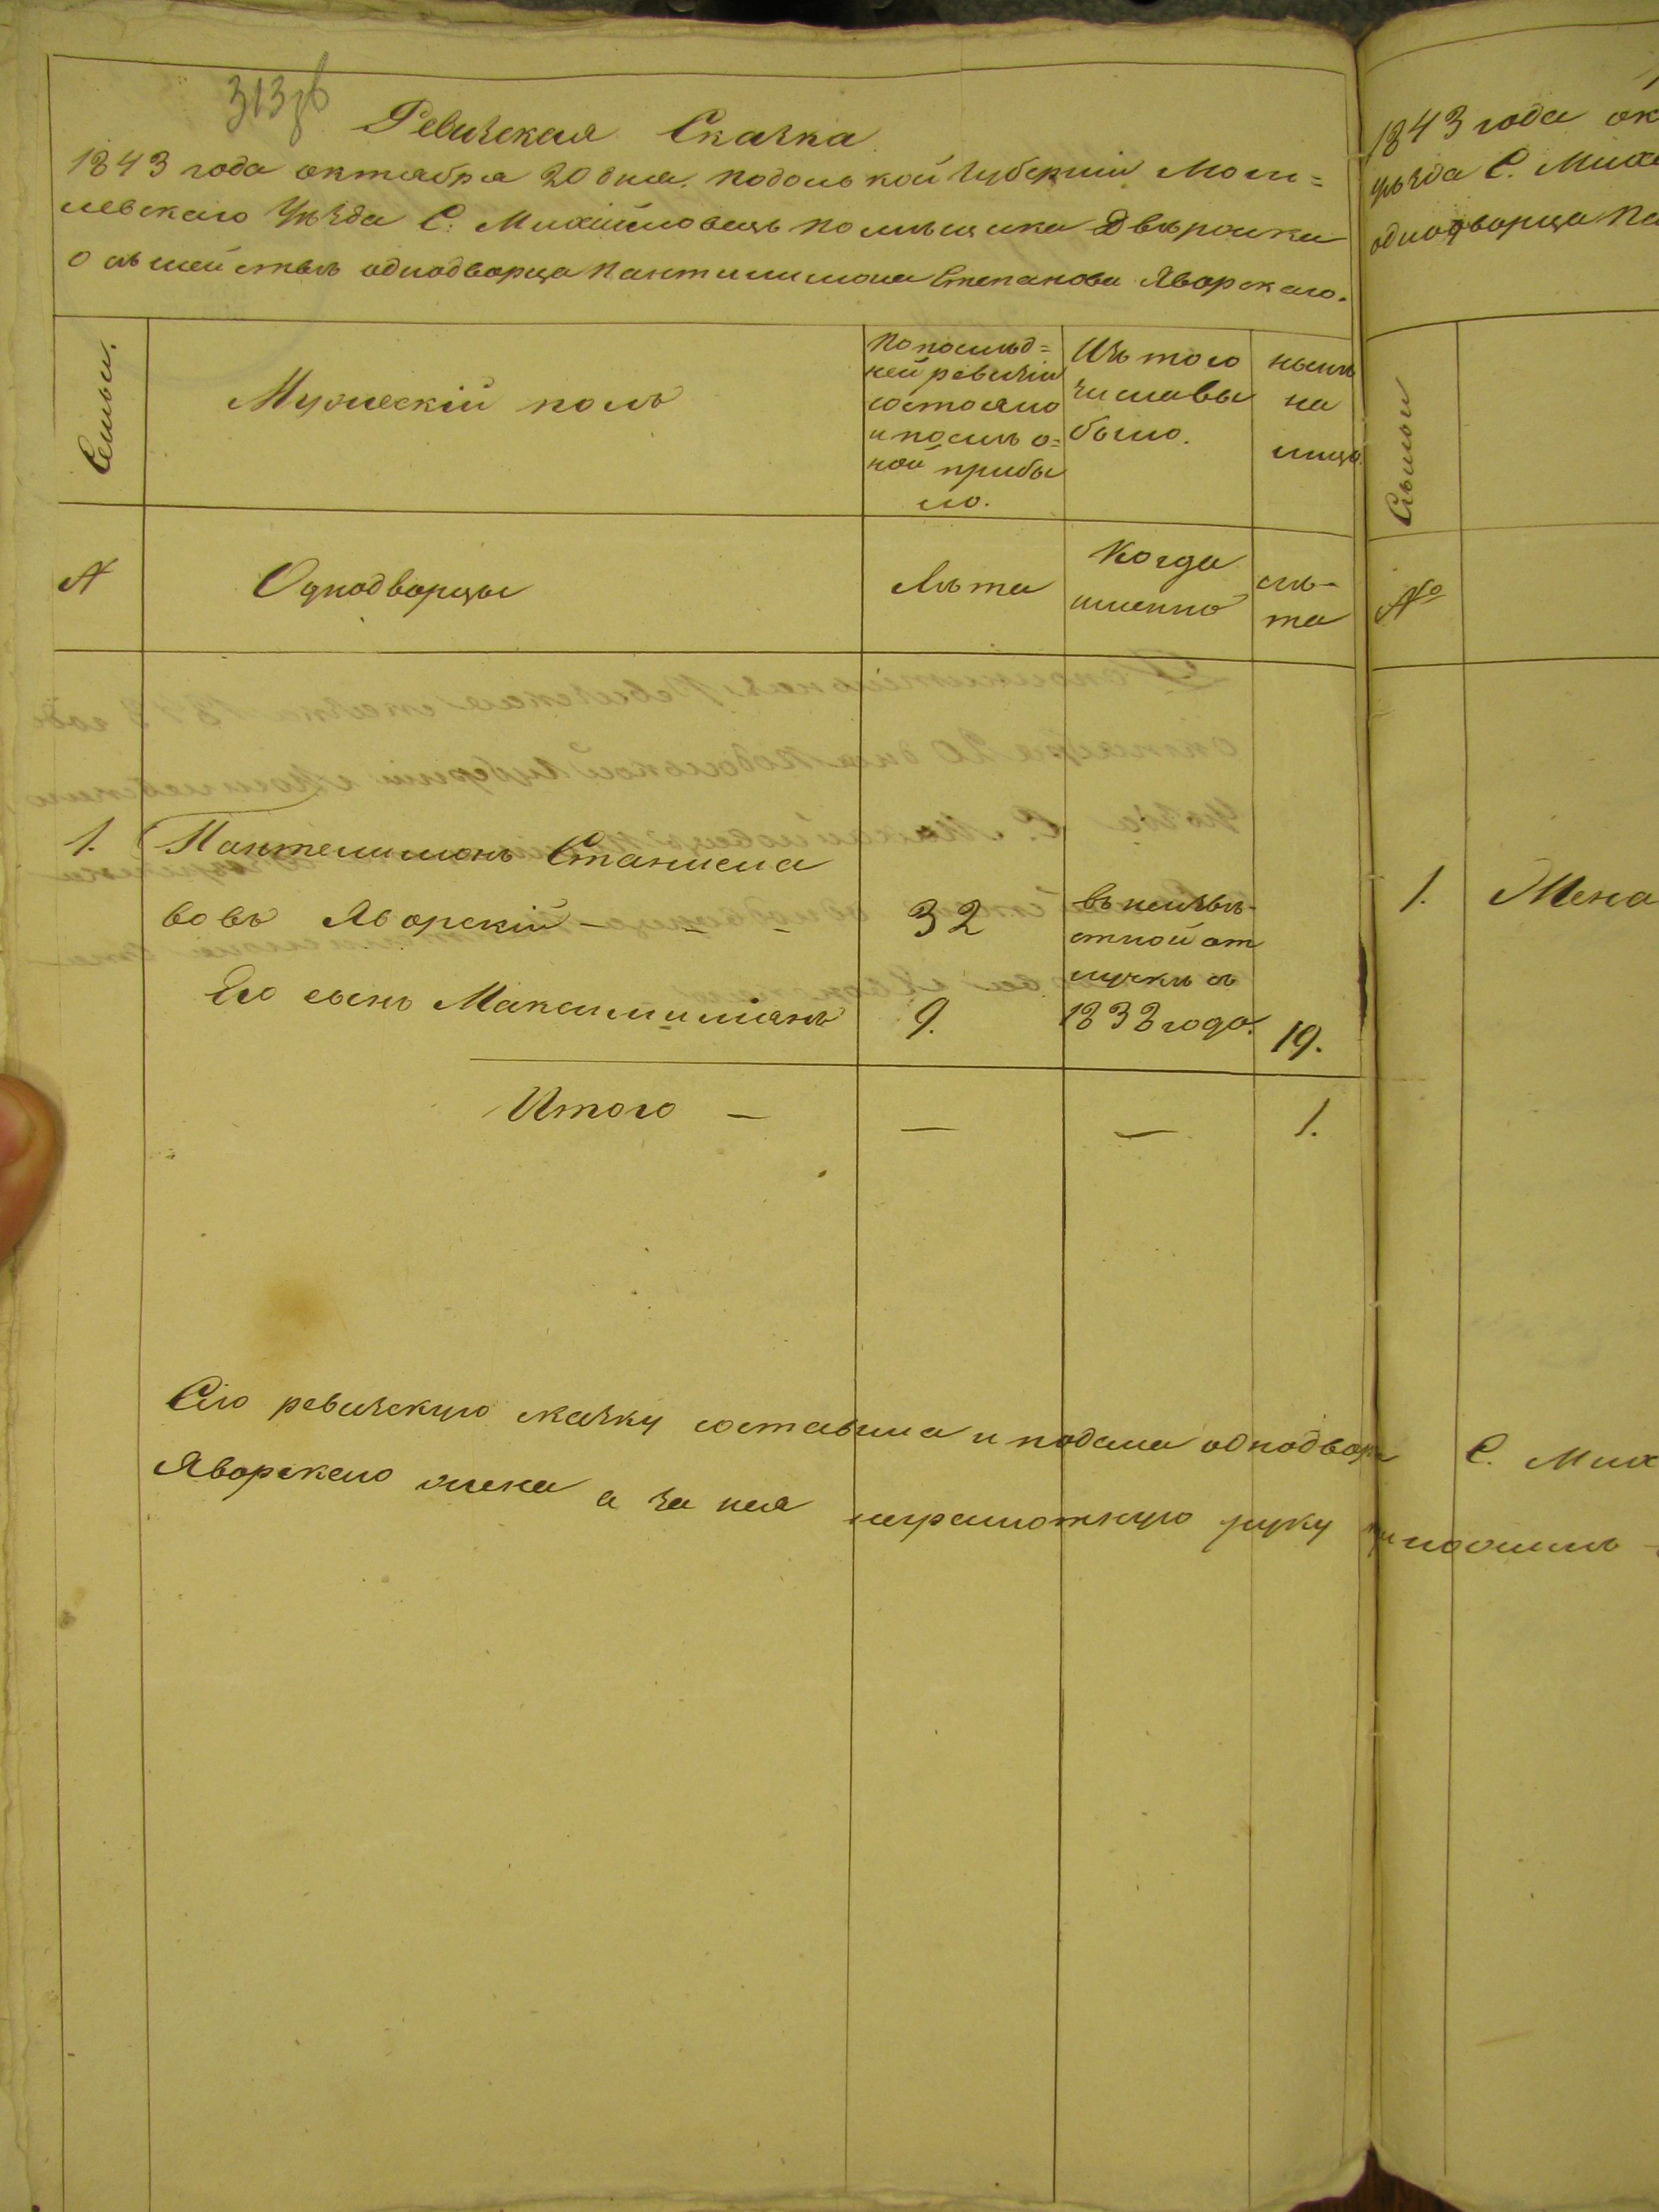 313
Ревизская Сказка
1843 года октября 20 дня. Подольской Губернии Моги=
левскаго Уѣзда С. Михайловецъ помѣщика Двѣрожки
О сѣмействѣ однодворца Пантилимона Степанова Яворскаго.
Семьи.
Мужескій полъ
По послѣд=
ней ревизіи
состояло
и послѣ о=
ной прибы
ло.
Изъ того
числа вы
было.
нынѣ
на
лицо.
№
Однодворцы
Лѣта
Когда
именно
лѣ-
та
1. Пантелимонъ Станисла
вовъ Яворскій - - - 32
въ неизвѣ-
стной от
лучкѣ съ
1838 года.
Его сынъ Максимиліянъ 9. 19.
Итого — — — 1.
Сію ревизскую сказку составила и подала однодвор
Яворскаго жена а за нея неграмотную руку приложилъ
1843 года ок
уѣзда С. Миха
однодворца Па
Сѣмьи
№
1. Жена
С. Мих